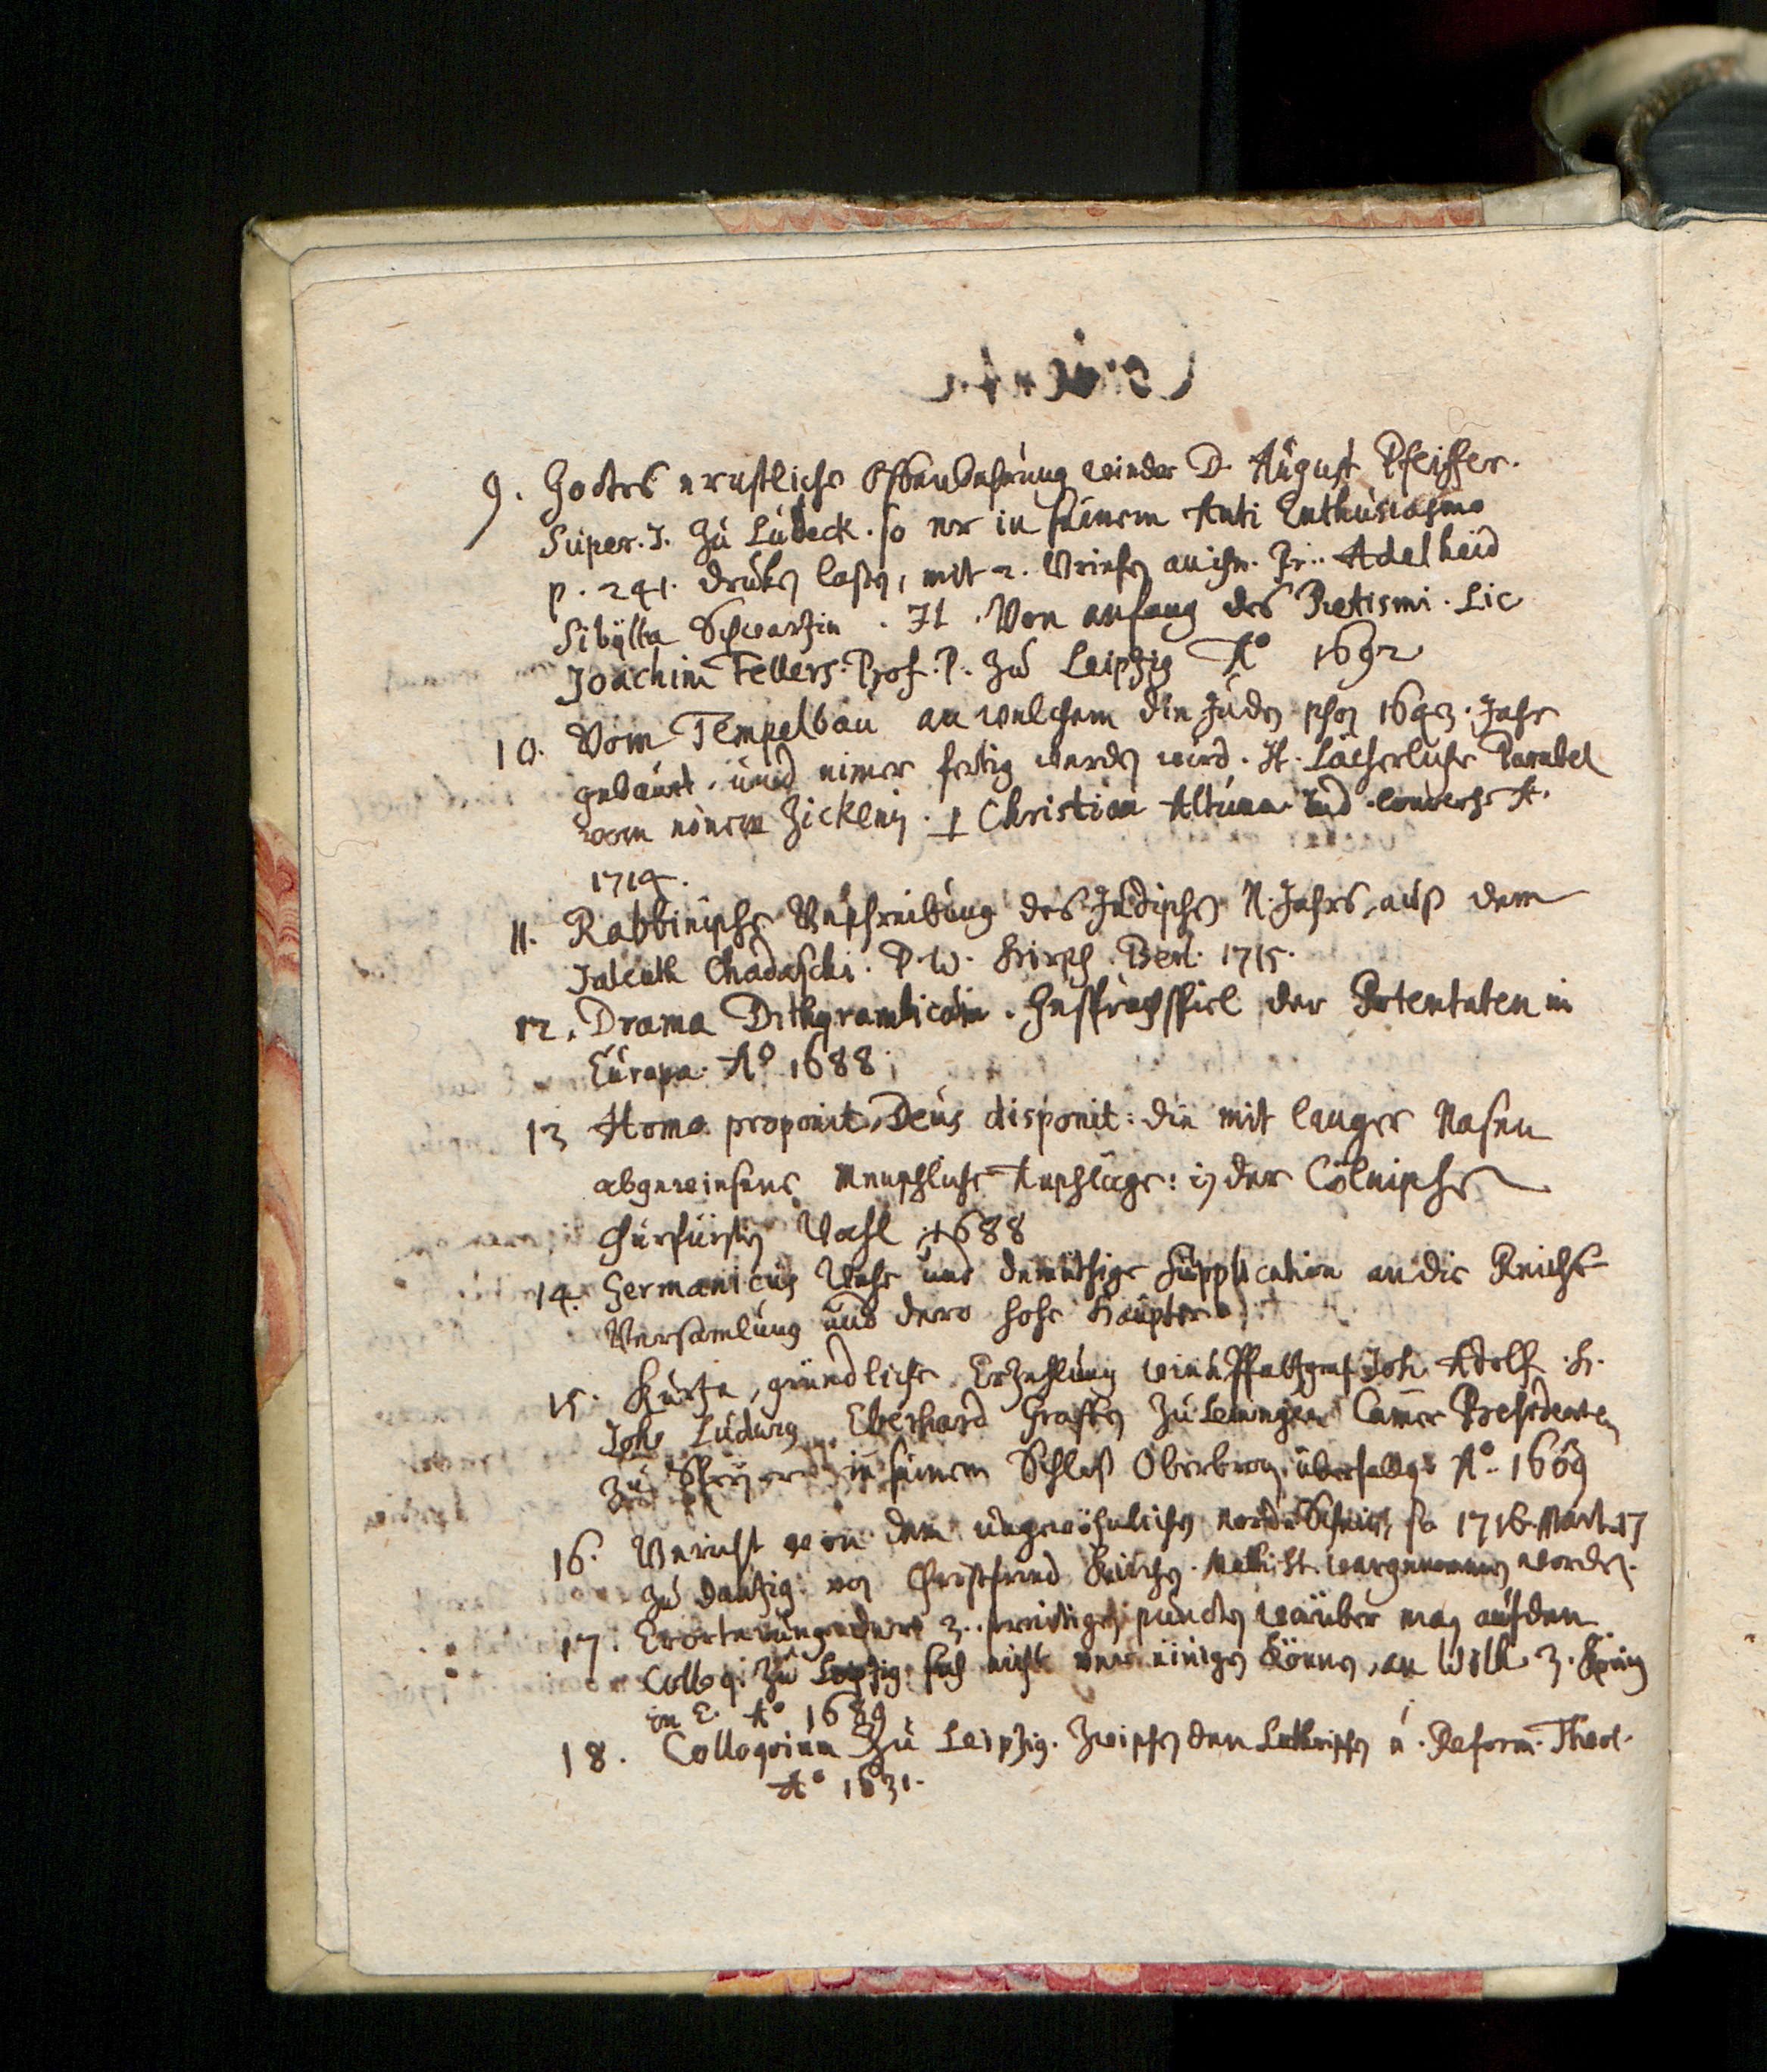 9. Gottes ernstliche Offenbahrung wieder D. August Pfeiffer.
Super. J. zu Lübeck. so er in seinem Anti Enthusiasmo
p. 241. druken lassen, mit 2. Briefen an ihn. Fr. Adelheid
Sibylla Schwartzin. It. Von anfang des Pietismi. Lic
Joachim Fellers. Prof. P. zu Leipzig Aº 1692
10. Vom Tempelbau an welchem die Juden schon 1643. Jahr
gebauet. und nimer fertig werden wird. It. Lächerliche Parabel
vom einem Zicklein. Christian Altman Jud. convers. A.
1714.
11. Rabbinische Beschreibung des Jüdischen N. Jahrs, auß dem
Jalcuth Chadaschi. P. W. Hirsch. Berl. 1715.
12. Drama Dithyrambicum. Gesprächspiel der Potentaten in
Europa. Aº 1688.
13 Homo proponit, Deus disponit: die mit langer Nasen
abgewiesene Menschliche Anschläge: in der Cölnischen
Churfürsten Wahl 1688
14. Germanicus Wehe und demüthige Supplication an die Reichs-
Versamlung und dero hohe Häupter.
15. Kurtze, gründliche Erzehlung wie Pfaltzgraf Joh. Adolf. H.
Joh. Ludwig Eberhard Graffen zu Leiningen Camer Presidenten
zu Speyer in seinem Schloß Oberbronn überfallen Aº 1669
16. Bericht von dem ungewöhnlichen Nordschein, so 1716. Mart. 17
zu Dantzig von Christfried Kirchen. wargenommen worden.
17. Erörterung derer 3. streitigen puncten warüber man auf dem
Colloq: zu Leipzig sich nicht vereinigen können, an Wilh. 3. König
in E. Aº 1689.
18. Colloqvium zu Leipzig. zwischen den Lutherischen u. Reform. Theol.
Aº 1631.